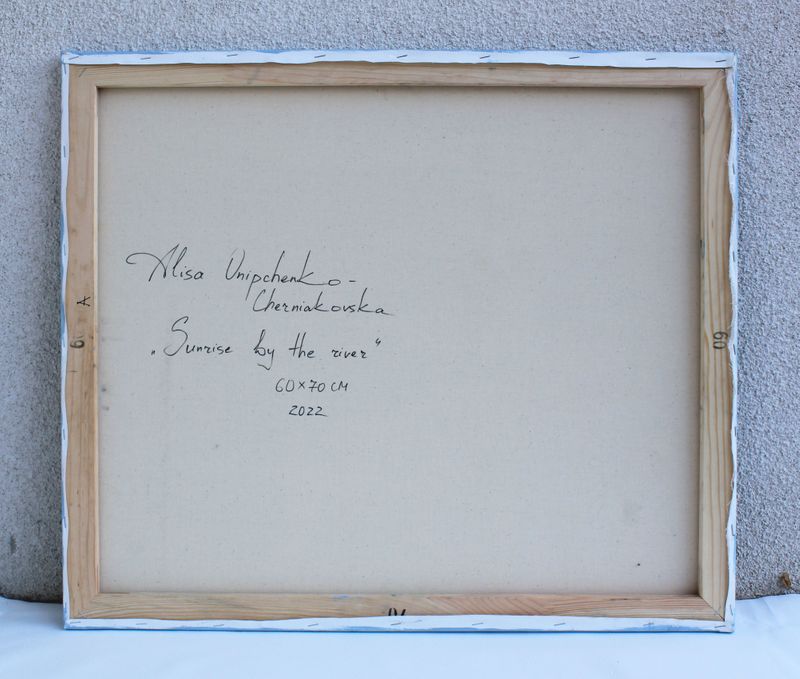 Alisa Onipchenko-
Cherniakovska
„Sunrise by the river“
60×70 CM
2022
A
60